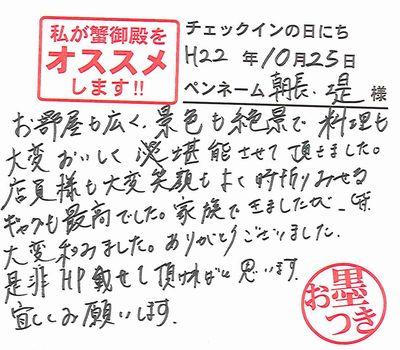 私が蟹御殿を
オススメ
します!!
チェックインの日にち
H22 年10月25日
ペンネーム 朝長・堤 様
お部屋も広く、景色も絶景で 料理も
大変おいしく 堪能させて頂きました。
店員様も大変笑顔もよく時折りみせる
ギャグも最高でした。家族で来ましたが、一時
大変和みました。ありがとうございました。
是非HP載せて頂ければと思います。
宜しくお願いします。
お墨
つき